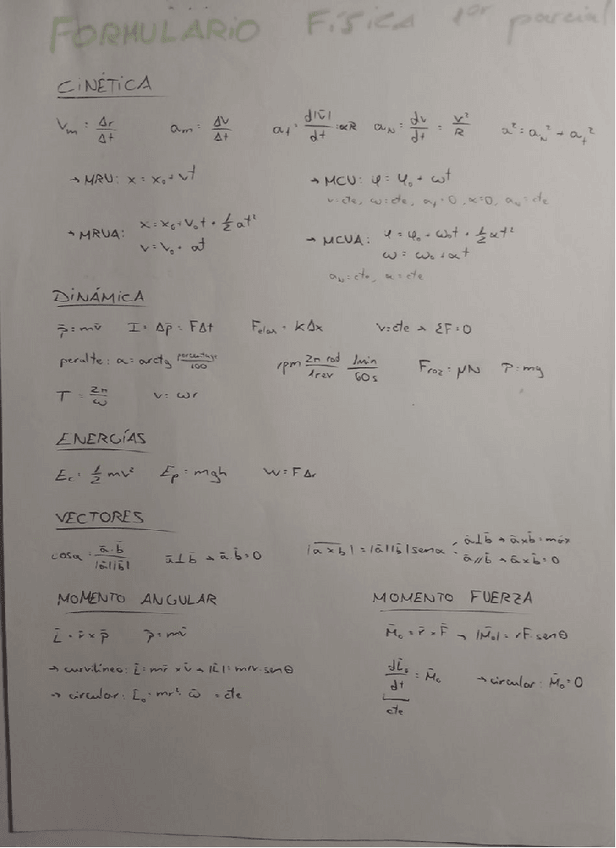 FORMULARIO FÍSICA 1er parcial
CINÉTICA
Vm = Δr/Δt am = ΔV/Δt at = d|v̄|/dt = αR aN = dv/dt = v²/R a² = aN² + at²
→ MRU: x = x₀ + vt
→ MCU: φ = φ₀ + ωt
v=cte, ω=cte, at=0, α=0, aN=cte
→ MRUA: x = x₀ + V₀t + ½at²
v = V₀ + at
→ MCUA: φ = φ₀ + ω₀t + ½αt²
ω = ω₀ + αt
aN=cte, α=cte
DINÁMICA
p̄ = mv̄ I = Δp̄ = FΔt Felas = kΔx v=cte → ΣF=0
peralte: α = arctg porcentaje/100 rpm 2π rad/1rev 1min/60s Froz = μN P=mg
T = 2π/ω v = ωr
ENERGÍAS
Ec = ½mv² Ep = mgh W = FΔr
VECTORES
cosα = ā·b̄/|ā||b̄| ā⊥b̄ → ā·b̄=0 |a×b| = |ā||b̄|senα : ā⊥b̄ → āxb̄=máx
ā//b̄ → āxb̄=0
MOMENTO ANGULAR
L̄ = r̄ × p̄ p̄ = mv̄
→ curvilíneo: L̄ = mr̄ × v̄ → |L̄| = mrv·senθ
→ circular: L̄₀ = mr²·ω̄ = cte
MOMENTO FUERZA
M̄₀ = r̄ × F̄ → |M̄₀| = rF·senθ
dL̄₀/dt = M̄₀ → circular: M̄₀=0
cte